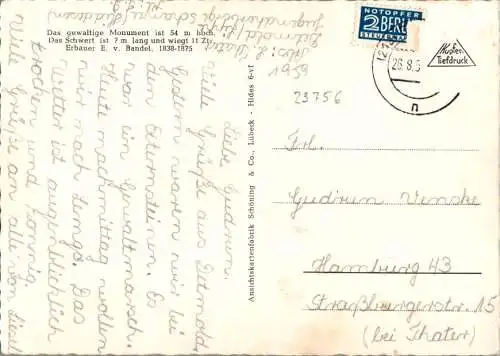 Das gewaltige Monument ist 54 m hoch.
Das Schwert ist 7 m lang und wiegt 11 Ztr.
Erbauer E. v. Bandel, 1838-1875
Liebe Gudrun.
Viele Grüße aus Detmold.
Gestern waren wir bei
den Externsteinen. Es
war ein Gewaltmarsch.
Heute nachmittag wollen
wir nach Lemgo. Das
Wetter ist augenblicklich
trocken und sonnig.
Viele Grüße an alle von
Detmold
Jugendherberge
Ansichtskartenfabrik Schöning & Co., Lübeck - Hides 6-vf
NOTOPFER
2 BERLIN
STEUERMARKE
26.8.5
n
Kupfer-
Tiefdruck
23756
Frl.
Gudrun Venske
Hamburg 43
Straßburgerstr. 15
(bei Thater)